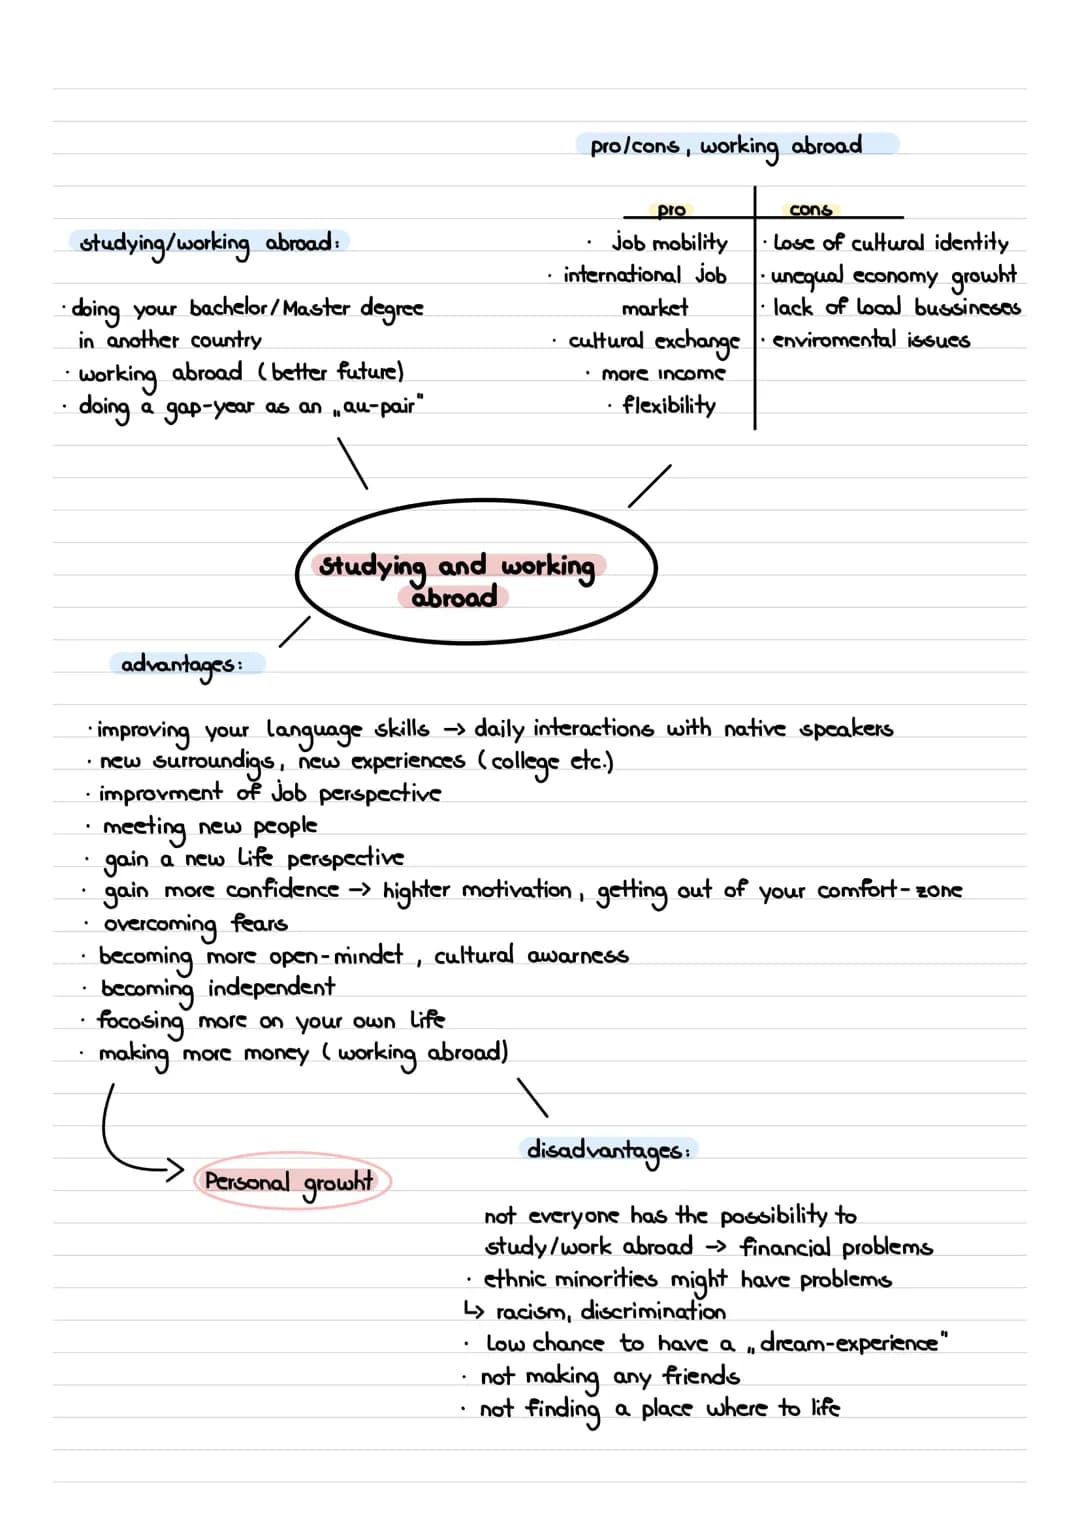 pro/cons, working abroad
pro
cons
· job mobility
· international job
market
· cultural exchange
· more income
· flexibility
· Lose of cultural identity
· unequal economy growht
· lack of local bussineses
· enviromental issues
studying/working abroad:
· doing your bachelor/Master degree
in another country
· working abroad (better future)
· doing a gap-year as an „au-pair"
Studying and working
abroad
advantages:
· improving your language skills → daily interactions with native speakers
· new surroundigs, new experiences (college etc.)
· improvment of job perspective
· meeting new people
· gain a new life perspective
· gain more confidence → highter motivation, getting out of your comfort-zone
· overcoming fears
· becoming more open-mindet, cultural awarness
· becoming independent
· focosing more on your own life
· making more money (working abroad)
Personal growht
disadvantages:
not everyone has the possibility to
study/work abroad → financial problems
· ethnic minorities might have problems
↳ racism, discrimination
· Low chance to have a „dream-experience"
· not making any friends
· not finding a place where to life